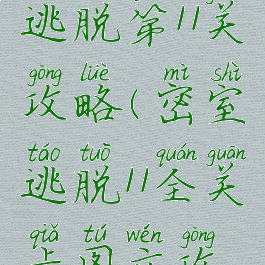 逃脱第11关
gōng lüè mì shì
攻略(密室
táo tuō quán guān
逃脱11全关
qiǎ tú wén gōng
卡图文攻